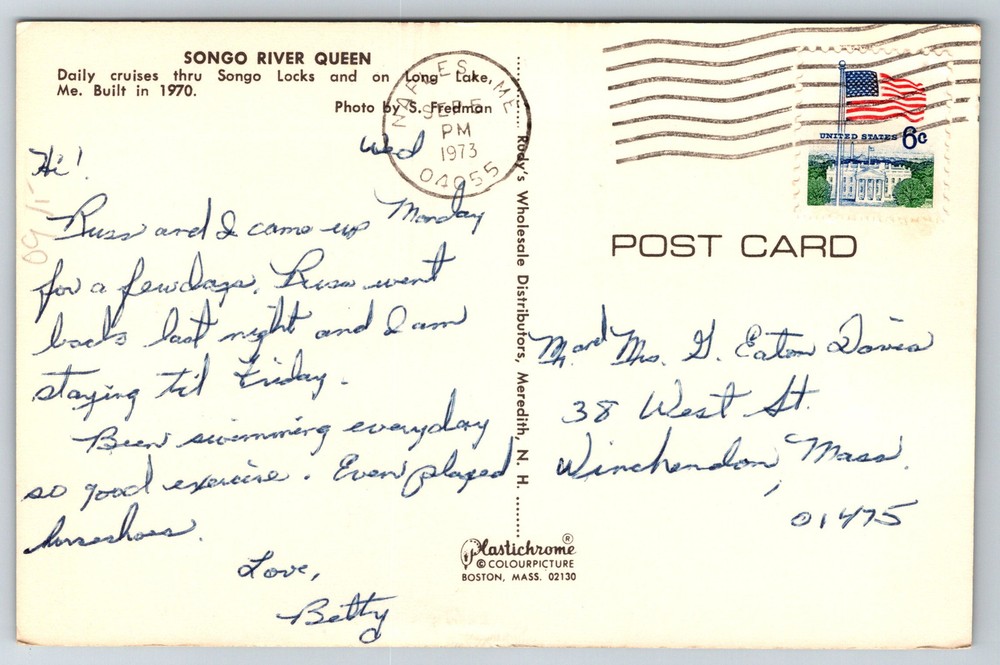 SONGO RIVER QUEEN
Daily cruises thru Songo Locks and on Long Lake,
Me. Built in 1970.
Photo by S. Fredman
NAPLES, ME
SEP 5
PM
1973
04055
UNITED STATES 6c
POST CARD
Wed
Hi!
Russ and I came up Monday
for a few days. Russ went
back last night and I am
staying til Friday.
Been swimming everyday
so good exercise. Even played
horseshoes.
Love,
Betty
Rudy's Wholesale Distributors, Meredith, N. H.
Mr and Mrs. G. Eaton Davis
38 West St.
Winchendon, Mass.
01475
Plastichrome®
© COLOURPICTURE
BOSTON, MASS. 02130